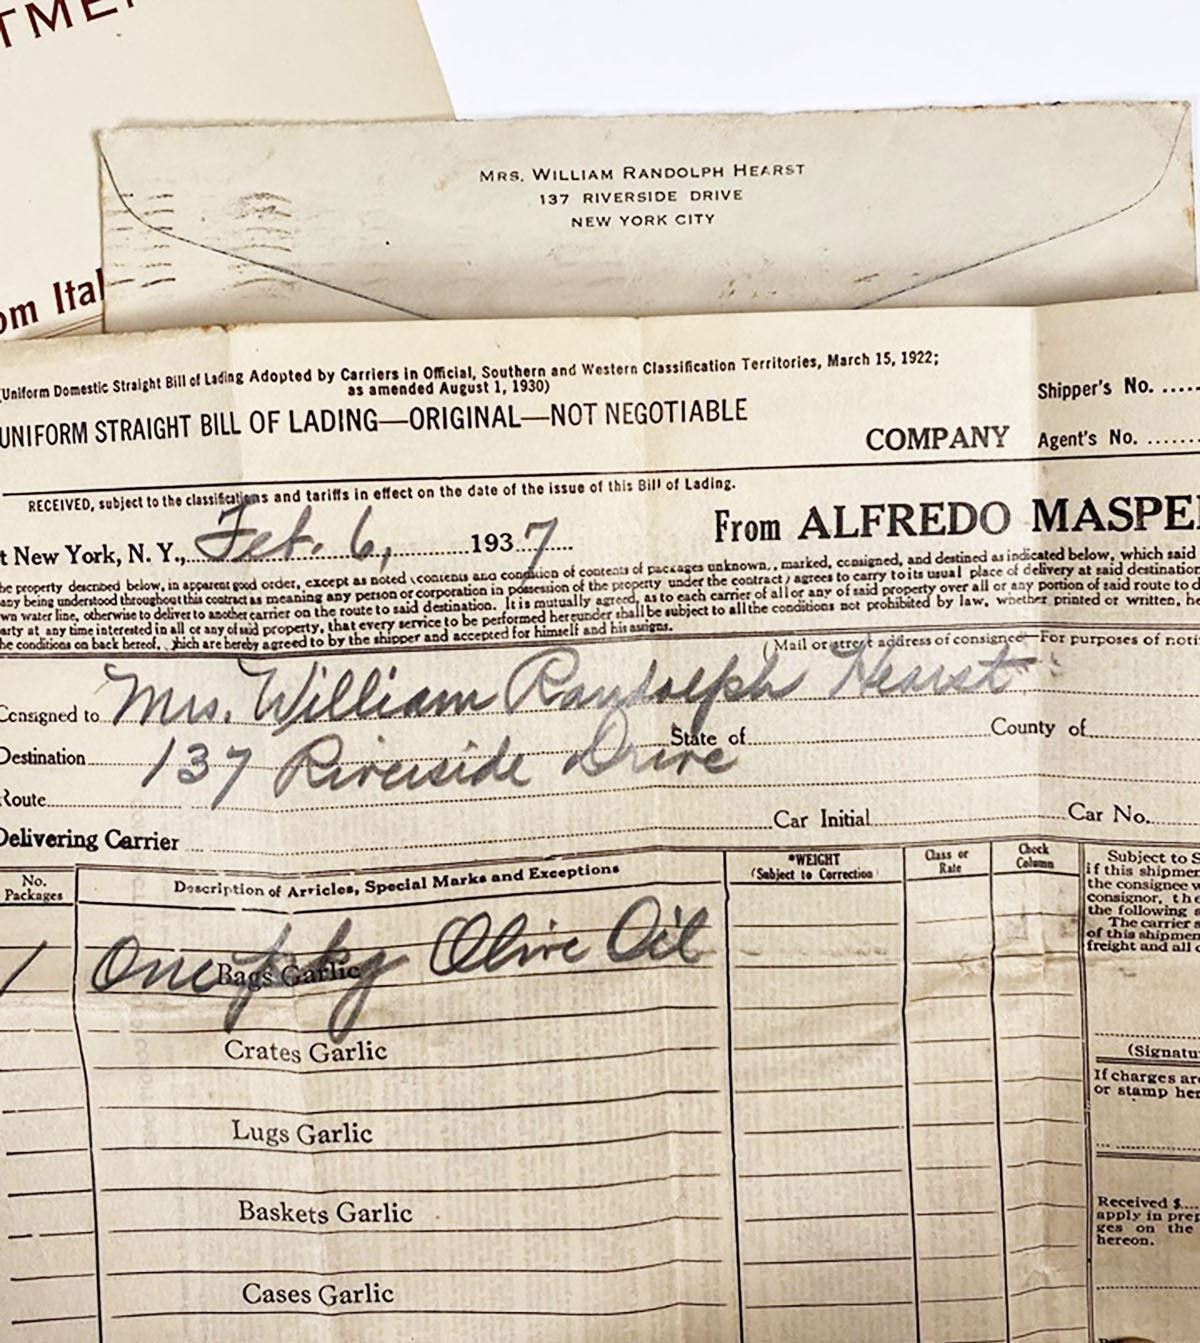 MRS. WILLIAM RANDOLPH HEARST
137 RIVERSIDE DRIVE
NEW YORK CITY
om Ital
(Uniform Domestic Straight Bill of Lading Adopted by Carriers in Official, Southern and Western Classification Territories, March 15, 1922;
as amended August 1, 1930)
Shipper's No.
UNIFORM STRAIGHT BILL OF LADING—ORIGINAL—NOT NEGOTIABLE
COMPANY Agent's No.
RECEIVED, subject to the classifications and tariffs in effect on the date of the issue of this Bill of Lading.
t New York, N. Y., Feb. 6, 1937 From ALFREDO MASPE
he property described below, in apparent good order, except as noted (contents and condition of contents of packages unknown), marked, consigned, and destined as indicated below, which said
any being understood throughout this contract as meaning any person or corporation in possession of the property under the contract) agrees to carry to its usual place of delivery at said destination
wn water line, otherwise to deliver to another carrier on the route to said destination. It is mutually agreed, as to each carrier of all or any of said property over all or any portion of said route to d
arty at any time interested in all or any of said property, that every service to be performed hereunder shall be subject to all the conditions not prohibited by law, whether printed or written, he
he conditions on back hereof, which are hereby agreed to by the shipper and accepted for himself and his assigns.
(Mail or street address of consignee—For purposes of noti
Consigned to Mrs. William Randolph Hearst
Destination 137 Riverside Drive State of County of
Route
Delivering Carrier Car Initial Car No.
No. Packages
Description of Articles, Special Marks and Exceptions
*WEIGHT
(Subject to Correction)
Class or
Rate
Check
Column
Subject to S
if this shipmen
the consignee w
consignor, the
the following s
The carrier s
of this shipmen
freight and all c
1 One pkg Olive Oil
Bags Garlic
Crates Garlic
(Signatu
If charges are
or stamp her
Lugs Garlic
Baskets Garlic
Received $
apply in prep
ges on the
hereon.
Cases Garlic